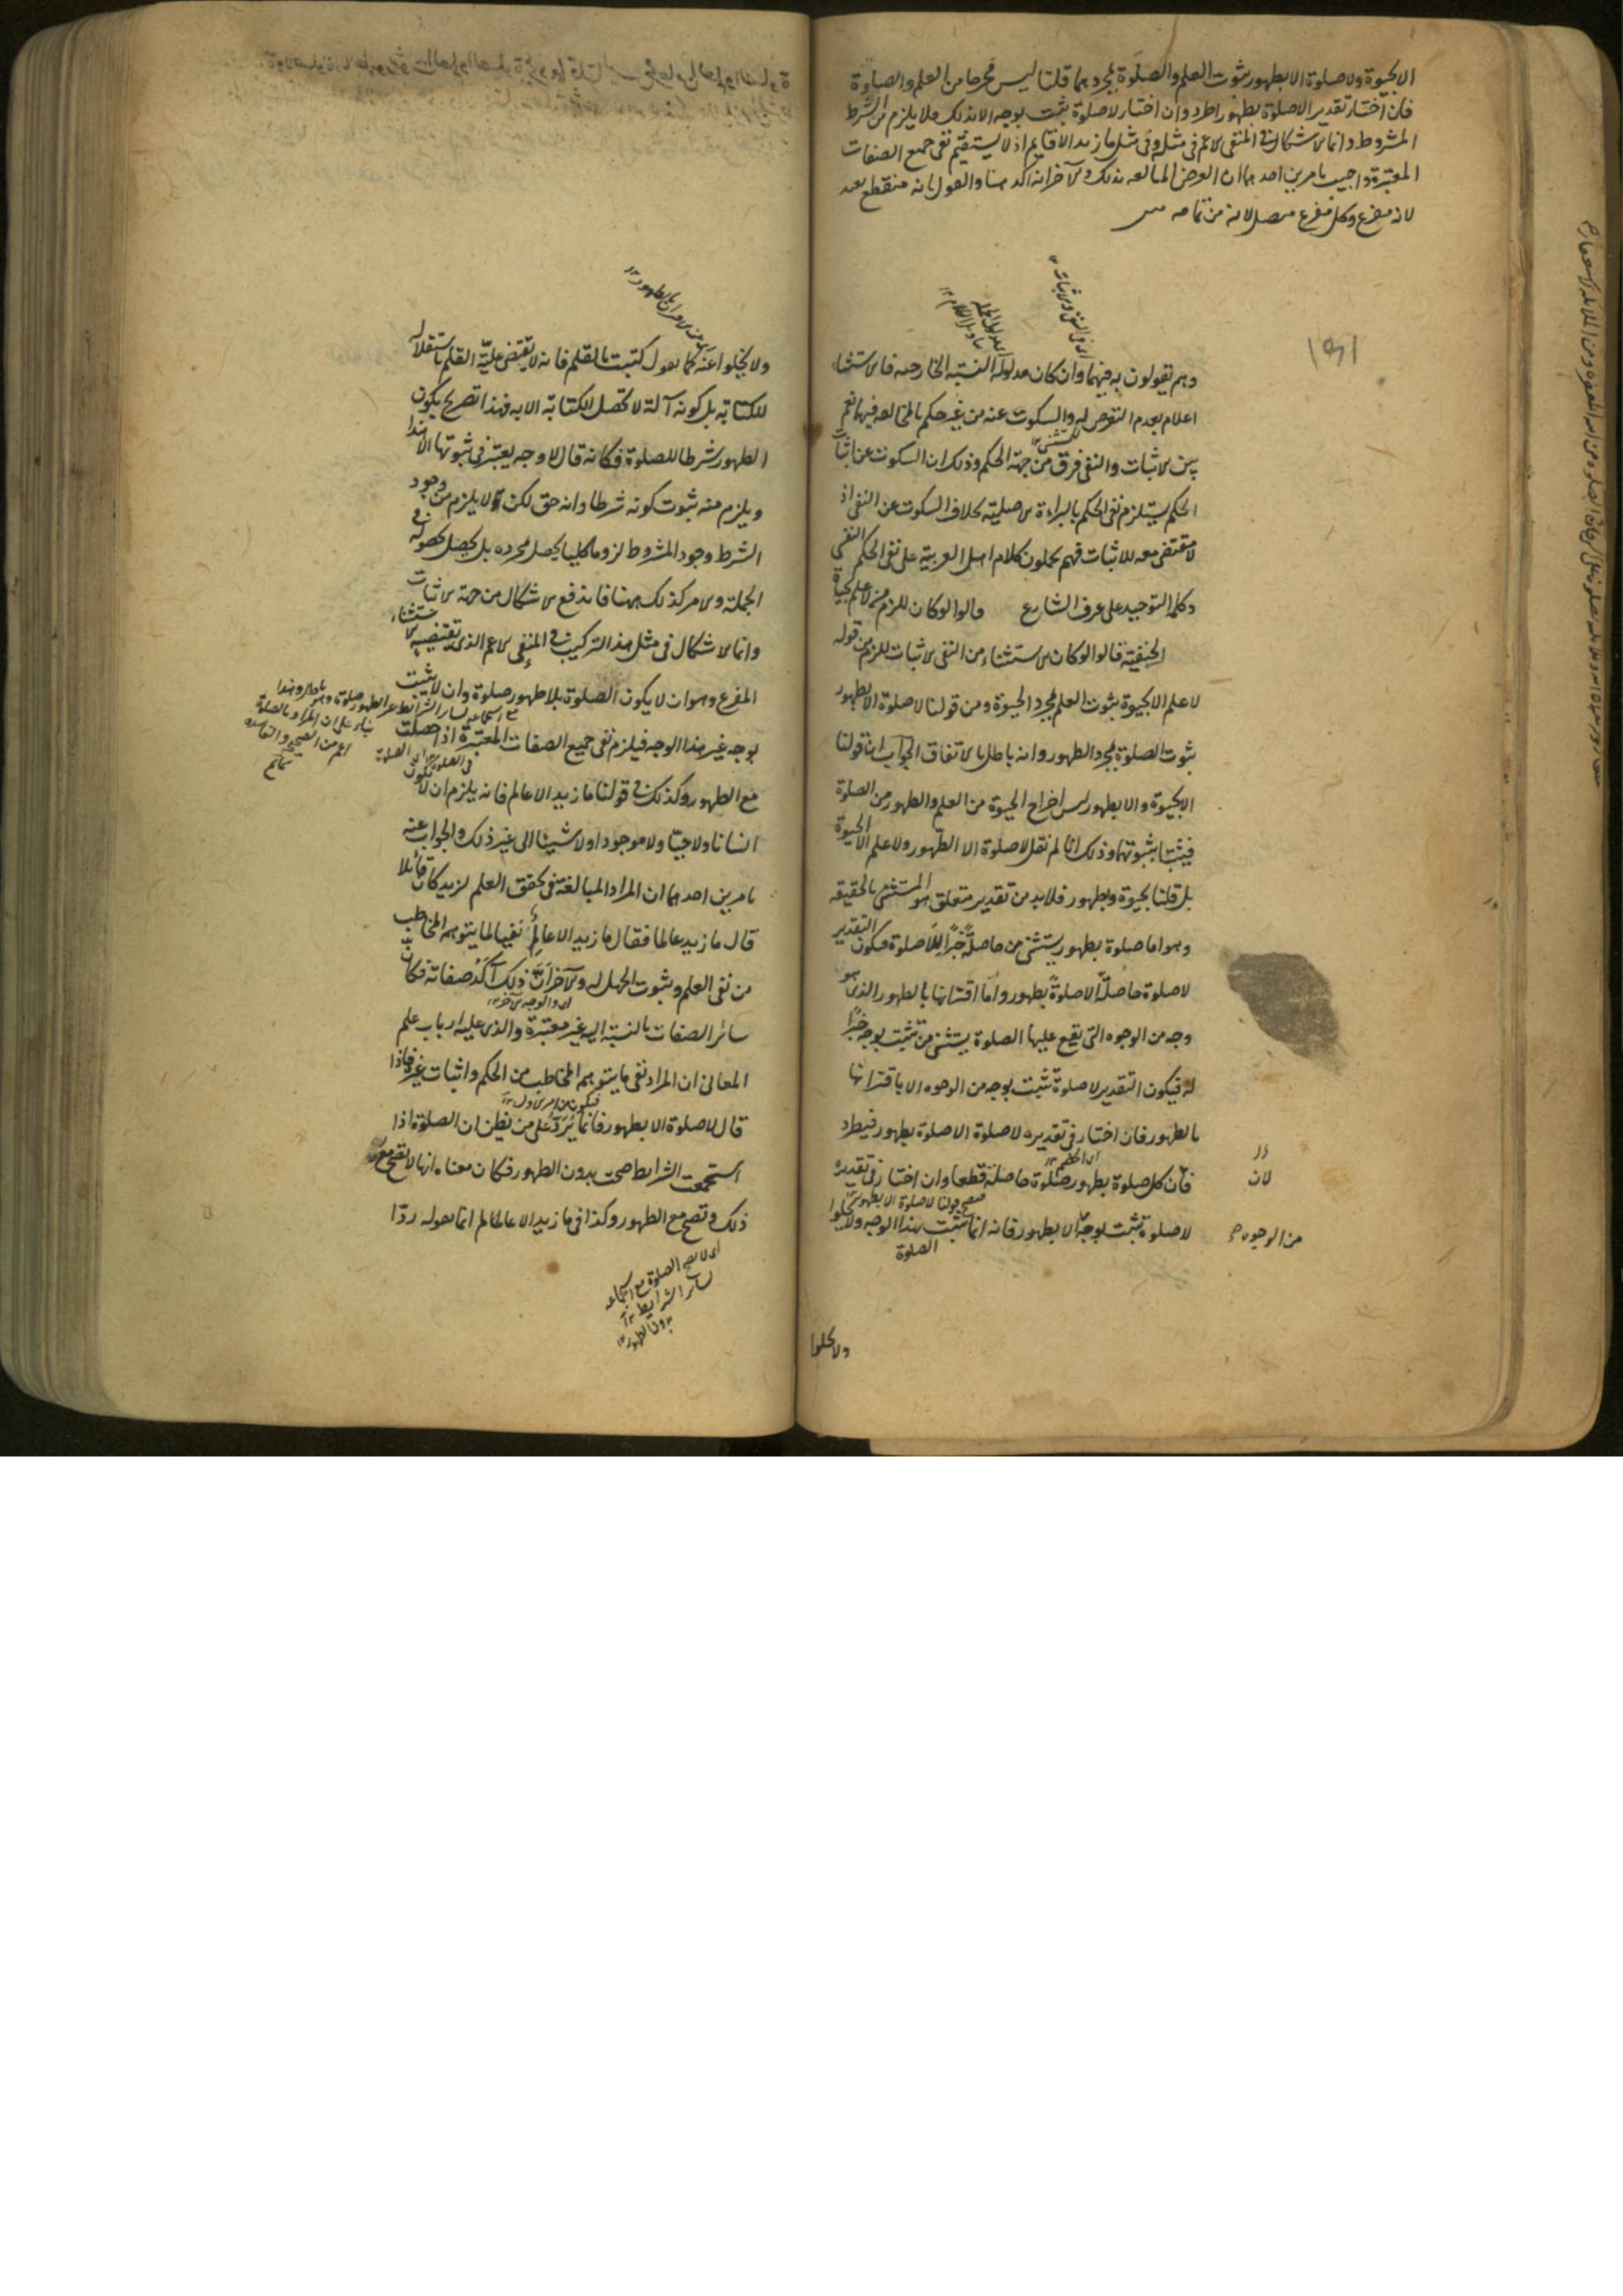 الا بحيوة ولا صلوة الا بطهور ثبوت العلم والصلوة بمجردهما قلنا ليس مخرجا من العلم والصلوة
فان اختار تقدير الا صلوة بطهور اطرد وان اختار لا صلوة تثبت بوجه الا بذلك فلا يلزم من الشرط
المشروط وانما الاشكال في المنفى الاعم في مثله وفى مثل ما زيد الا قايم اذ لا يستقيم نفى جميع الصفات
المعتبرة واجيب بامرين احدهما ان الغرض المبالغة بذلك والآخر انه آكدها والقول بانه منقطع بعيد
لانه مفرغ وكل مفرغ متصل لانه من تمامه
١٥١
وهم يقولون به فيهما وان كان مدلوله النسبة الخارجية فالاستثناء
اعلام بعدم التعرض له والسكوت عنه من غير حكم بالمخالفة فيهما نعم
بين الاثبات والنفى فرق من جهة الحكم وذلك ان السكوت عن اثبات
الحكم يستلزم نفى الحكم بالبراءة الاصلية بخلاف السكوت عن النفى اذ
لا مقتضى معه للاثبات فهم يحملون كلام اهل العربية على نفى الحكم النفسي
وكلمة التوحيد على عرف الشارع قالوا لو كان للزم من لا علم الا بحيوة
الحنفية قالوا لو كان الاستثناء من النفى الاثبات للزم من قوله
لا علم الا بحيوة ثبوت العلم بمجرد الحيوة ومن قولنا لا صلوة الا بطهور
ثبوت الصلوة بمجرد الطهور وانه باطل بالاتفاق الجواب ان قولنا
الا بحيوة والا بطهور ليس اخراج الحيوة من العلم والطهور من الصلوة
فيثبتا بثبوتهما وذلك انا لم نقل لا صلوة الا الطهور ولا علم الا الحيوة
بل قلنا بحيوة وبطهور فلا بد من تقدير متعلق هو المستثنى بالحقيقة
وهو اما صلوة بطهور يستثنى من حاصلة خبرا للا صلوة فيكون التقدير
لا صلوة حاصلة الا صلوة بطهور واما اقترانها بالطهور الذى هو
وجه من الوجوه التى تقع عليها الصلوة يستثنى من تثبت بوجه خبرا
له فيكون التقدير لا صلوة تثبت بوجه من الوجوه الا باقترانها
بالطهور فان اختار في تقديره لا صلوة الا صلوة بطهور فيطرد
فان كل صلوة بطهور صلوة حاصلة قطعا وان اختار في تقديره
لا صلوة تثبت بوجه الا بطهور فانه انما تثبت بهذا الوجه ولا يخلوا
الصلوة
لان
من الوجوه
ولا يخلوا
ولا يخلوا عنه كما نقول كتبت بالقلم فانه لا يقتضى علية القلم باستقلاله
للكتابة بل كونه آلة لا تحصل الكتابة الا به فهذا تصريح بكون
الطهور شرطا للصلوة فكانه قال لا وجه يعتبر في ثبوتها الا هذا
ويلزم منه ثبوت كونه شرطا وانه حق لكن لا يلزم من وجود
الشرط وجود المشروط لزوما كليا يحصل بمجرده بل يحصل بحصوله في
الجملة والامر كذلك ههنا فاندفع الاشكال من جهة الاثبات
وانما الاشكال في مثل هذا التركيب في المنفى الاعم الذى يقتضيه الاستثناء
المفرغ وهو ان لا يكون الصلوة بلا طهور صلوة وان لا يثبت
بوجه غير هذا الوجه فيلزم نفى جميع الصفات المعتبرة اذا حصلت
مع الطهور وكذلك في قولنا ما زيد الا عالم فانه يلزم ان لا يكون
انسانا ولا حيا ولا موجودا ولا شيئا الى غير ذلك والجواب عنه
بامرين احدهما ان المراد المبالغة في تحقق العلم لزيد كان قائلا
قال ما زيد عالما فقال ما زيد الا عالم نفيا لما يتوهم المخاطب
من نفى العلم وثبوت الجهل له والآخر ان ذلك آكد صفاته فكان
سائر الصفات بالنسبة اليه غير معتبرة والذى عليه ارباب علم
المعانى ان المراد نفى ما يتوهم المخاطب من الحكم واثبات غيره فاذا
قال لا صلوة الا بطهور فانما يرد على من يظن ان الصلوة اذا
استجمعت الشرايط صحت بدون الطهور فكان معناه انها لا تصح مع
ذلك وتصح مع الطهور وكذا في ما زيد الا عالم انما نقوله ردا
اى لا تصح الصلوة مع استجماعه
لسائر الشرايط
بدون الطهور